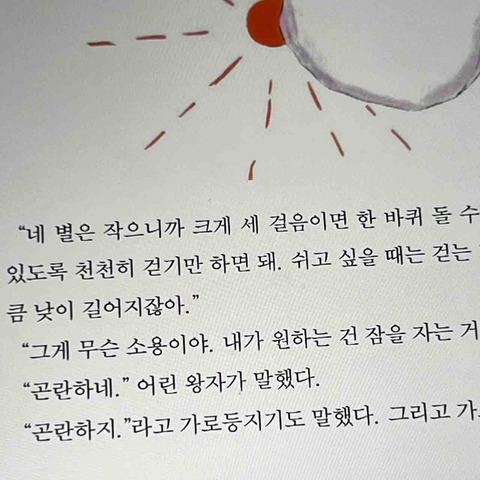 “네 별은 작으니까 크게 세 걸음이면 한 바퀴 돌 수
있도록 천천히 걷기만 하면 돼. 쉬고 싶을 때는 걷는
큼 낮이 길어지잖아.”
“그게 무슨 소용이야. 내가 원하는 건 잠을 자는 거
“곤란하네.” 어린 왕자가 말했다.
“곤란하지.”라고 가로등지기도 말했다. 그리고